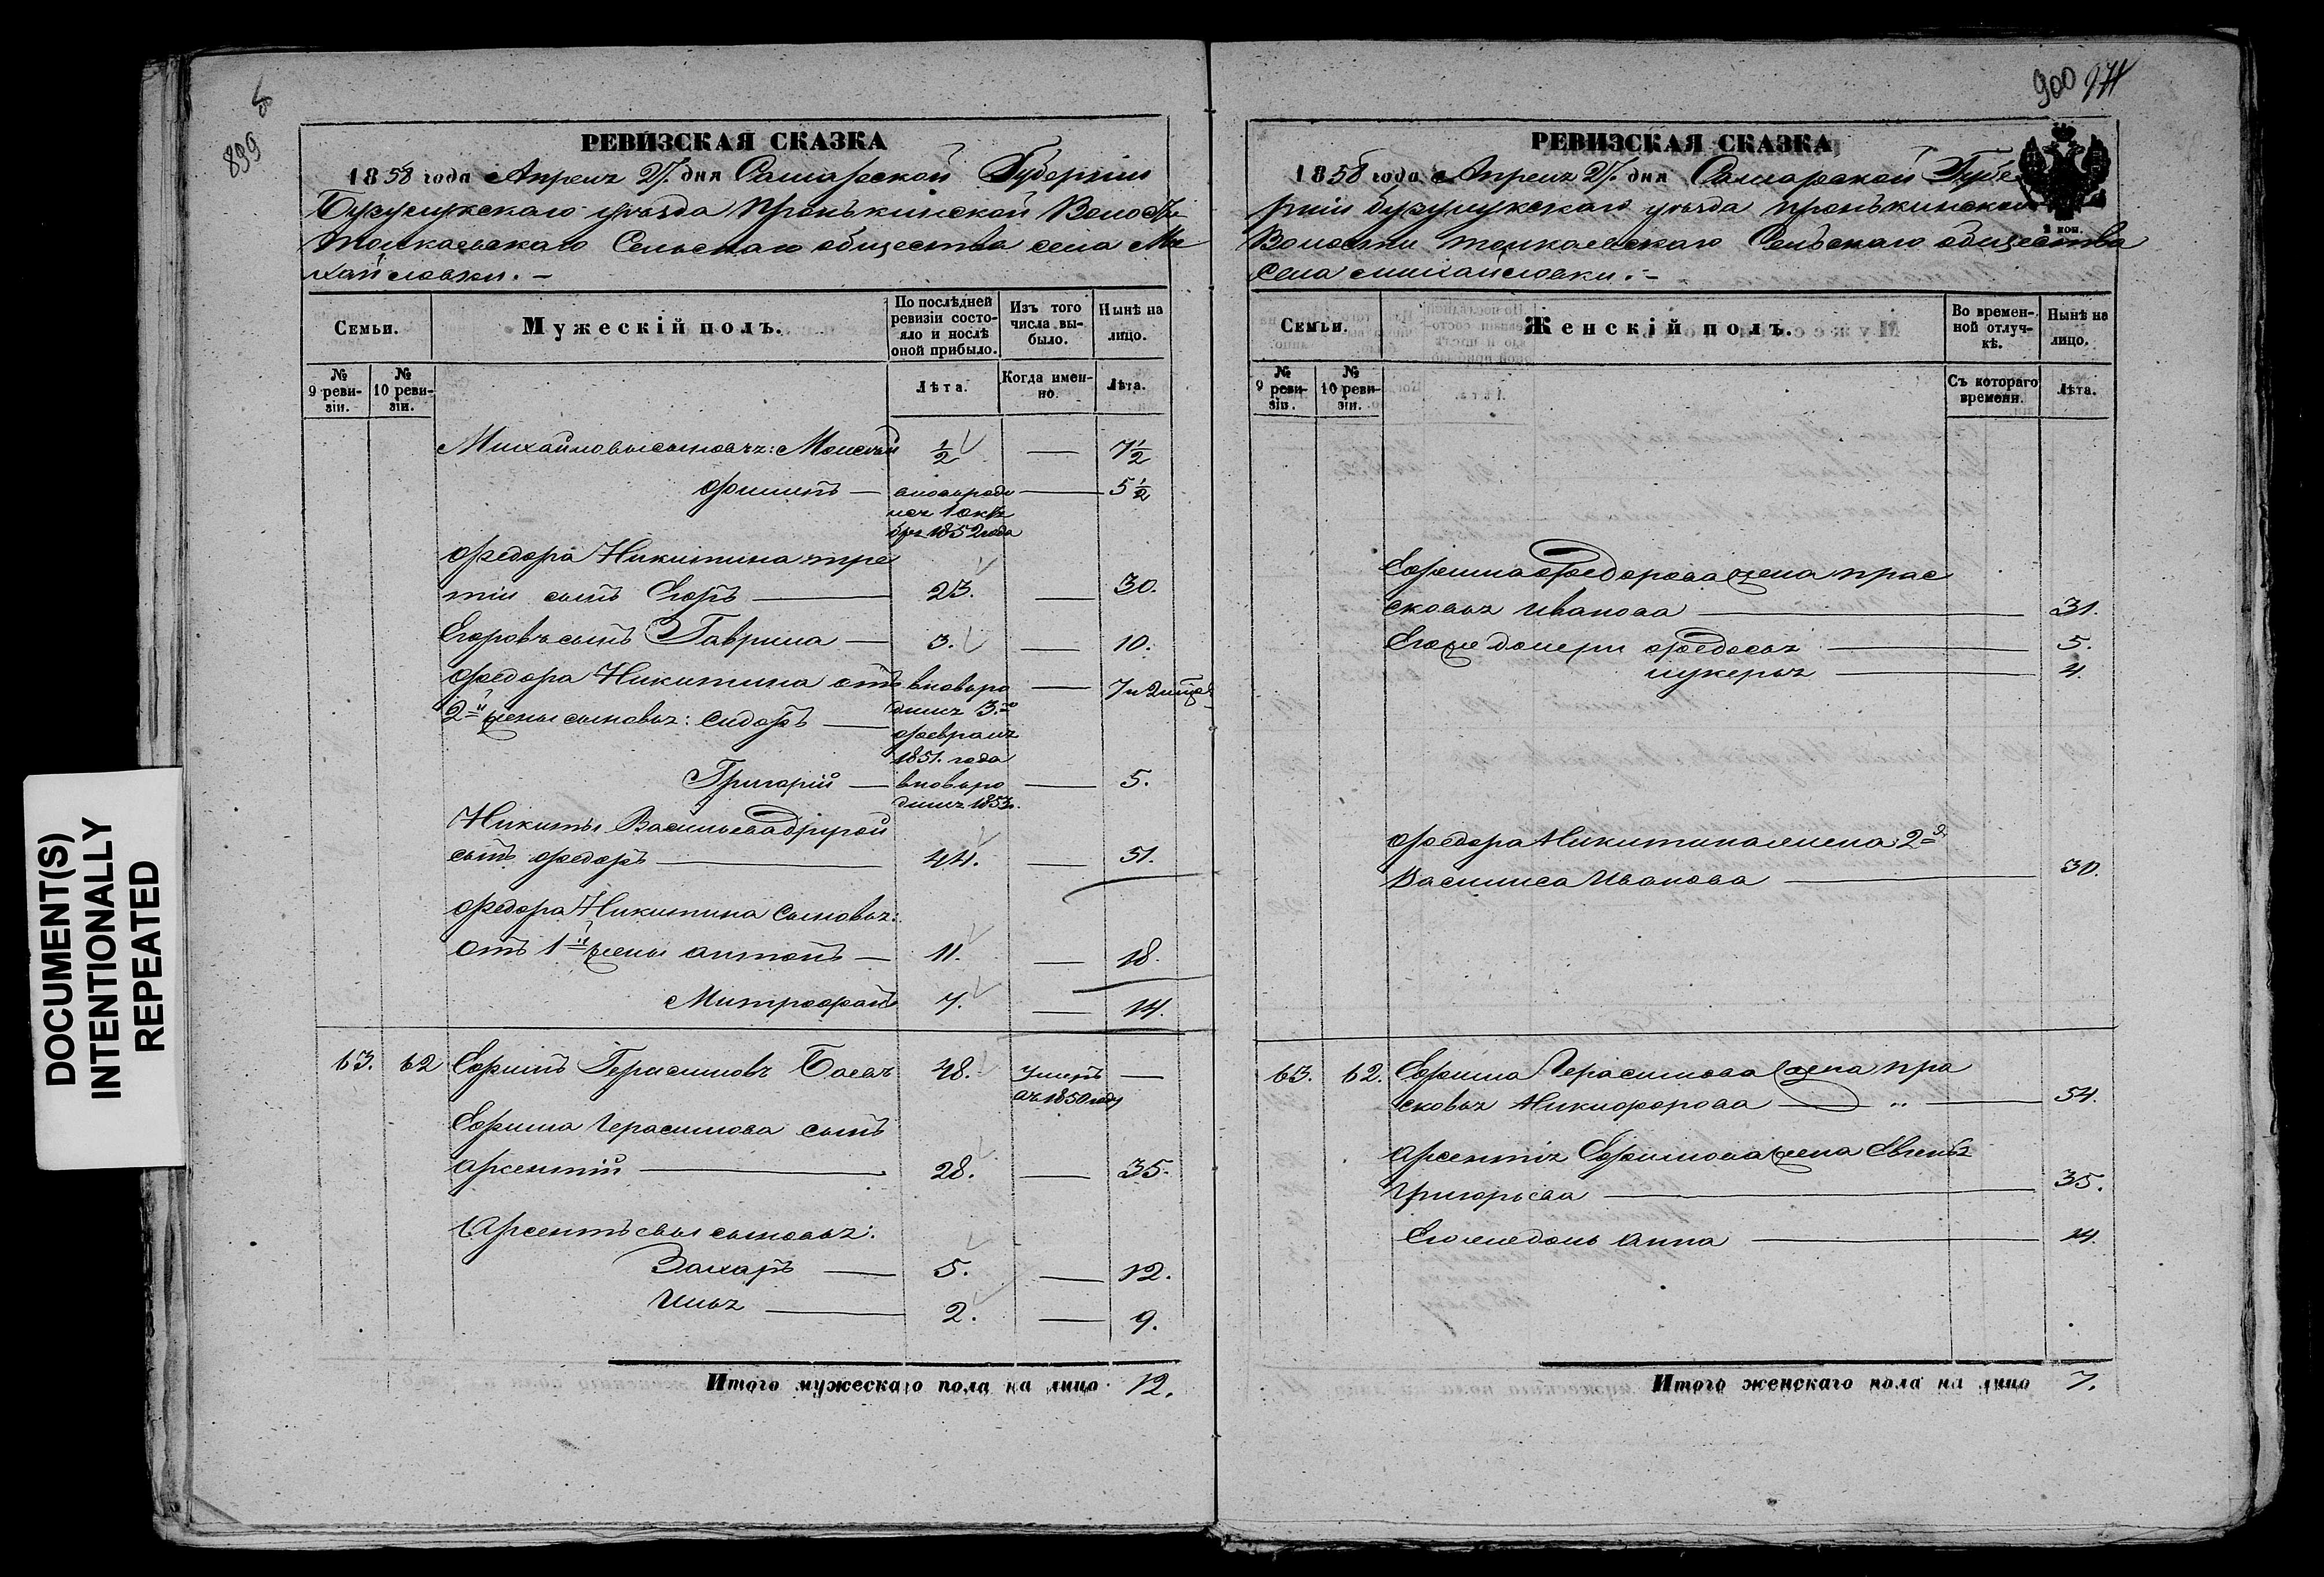 899
РЕВИЗСКАЯ СКАЗКА
1858 года Апреля 27. дня Самарской Губерніи
Бузулукскаго уѣзда Пронькинской Волости
Сельскаго общества села Ми
хайловки. —
Семьи.
Мужескій полъ.
По послѣдней ревизіи состояло и послѣ оной прибыло.
Изъ того числа выбыло.
Нынѣ на лицо.
№ 9 ревизіи.
№ 10 ревизіи.
Лѣта.
Когда именно.
Лѣта.
Михайловы сыновья: Моисей ½ — 7½
Филипъ — вновь роди — 5½
лся 1 октя
бря 1852 года
Федора Никитина тре
тій сынъ Егоръ — 23. — 30.
Егоровъ сынъ Гаврила — 3. — 10.
Федора Никитина отъ вновь ро — 7 и 2 мѣся
2й жены сыновья: Сидоръ — дился 3го
февраля
1851. года
Григорій — вновь ро — 5.
дился 1853 г.
Никиты Васильева другой
сынъ Федоръ — 44. — 51.
Федора Никитина сыновья:
отъ 1й жены Антонъ — 11. — 18.
Митрофанъ 7. — 14.
63. 62 Ефимъ Герасимовъ 48. Умеръ —
въ 1850 году
Ефима Герасимова сынъ
Арсентій — 28. — 35.
Арсентьевы сыновья:
Захаръ — 5. — 12.
Илья — 2. — 9.
Итого мужескаго пола на лицо 12.
900 974
РЕВИЗСКАЯ СКАЗКА
1858 года Апреля 27. дня Самарской Губе
рніи Бузулукскаго уѣзда Пронькинской
Волости Сельскаго общества
Села Михайловки. —
Семьи.
Женскій полъ.
Во временной отлучкѣ.
Нынѣ на лицо.
№ 9 ревизіи.
№ 10 ревизіи.
Съ котораго времени.
Лѣта.
Федорова жена Прас
ковья Иванова — 31.
Его же дочери Федосья — 5.
Лукерья — 4.
Федора Никитина жена 2я
Василиса Иванова — 30.
63. 62. Ефима Герасимова жена Пра
сковья Никифорова — 54.
Арсентія Ефимова жена Евгенья
Григорьева — 35.
Его же дочь Анна — 14.
Итого женскаго пола на лицо 7.
DOCUMENT(S)
INTENTIONALLY
REPEATED